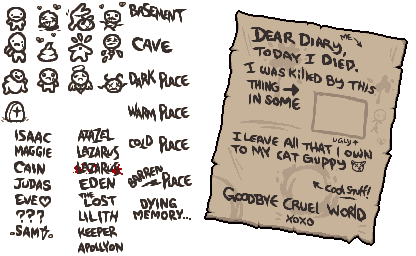 BASEMENT
CAVE
DARK PLACE
WARM PLACE
COLD PLACE
BARREN PLACE
DYING
MEMORY...
ISAAC
MAGGIE
CAIN
JUDAS
EVE
???
SAMS
AZAZEL
LAZARUS
LAZARUS
EDEN
THE
LOST
LILITH
KEEPER
APOLLYON
DEAR DIARY,
ME
TODAY I DIED.
I WAS KILLED BY THIS
THING
IN SOME
UGLY
I LEAVE ALL THAT I OWN
TO MY CAT GUPPY
COOL STUFF!
GOODBYE CRUEL WORLD
XOXO